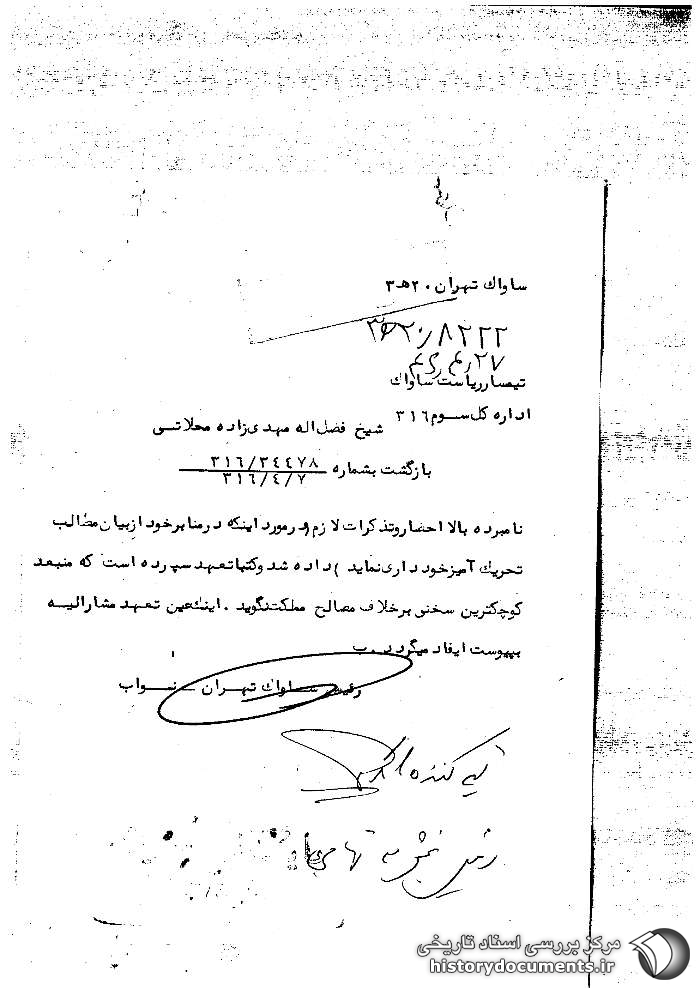 ساواك تهران ۲۰هـ۳
۲۰/۸۲۲۲
تیمسار ریاست ساواك
اداره کل سوم ۳۱۶
شیخ فضل اله مهدی زاده محلاتی
بازگشت بشماره ۳۱۶/۳۴۴۷۸
۳۱۶/۴/۷
نامبرده بالا احضار و تذکرات لازم (در مورد اینکه در منابر خود از بیان مطالب
تحریك آمیز خود داری نماید) داده شد و کتبا تعهد سپرده است که منبعد
کوچکترین سخنی بر خلاف مصالح مملکت نگوید. اینك عین تعهد مشارالیه
بپیوست ایفاد میگردد. ب
رئیس ساواك تهران - نواب
رئیس بخش
مرکز بررسی اسناد تاریخی
historydocuments.ir